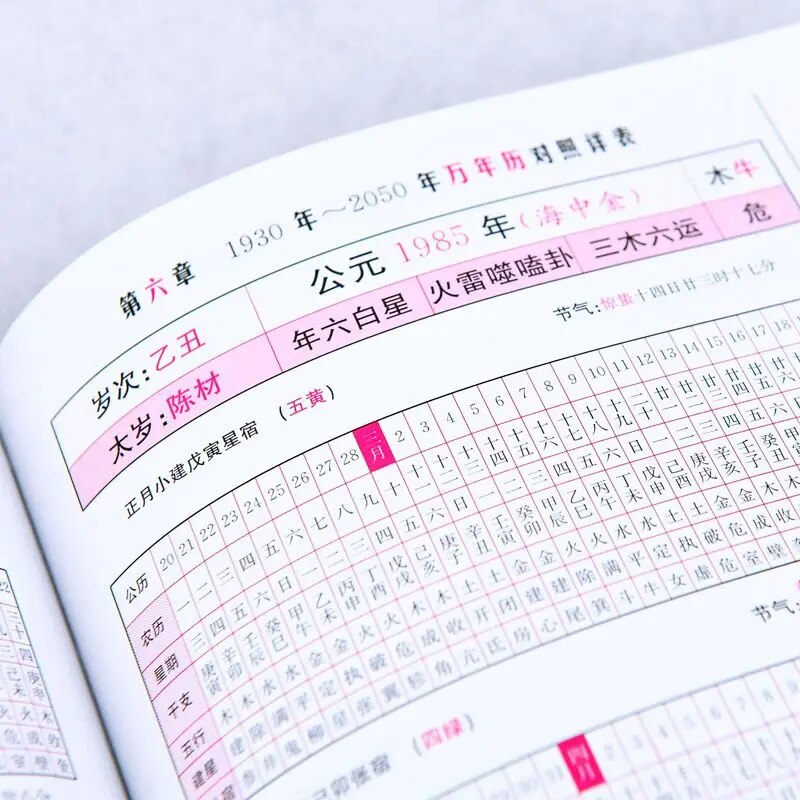 第六章 1930年～2050年万年历对照详表
岁次:乙丑 公元1985年(海中金) 木牛
太岁:陈材 年六白星 火雷噬嗑卦 三木六运 危
正月小建戊寅星宿 (五黄) 节气:惊蛰十四日廿三时十七分
公历 20 21 22 23 24 25 26 27 28 三月 2 3 4 5 6 7 8 9 10 11 12 13 14 15 16 17 18
农历 一 二 三 四 五 六 七 八 九 十 十一 十二 十三 十四 十五 十六 十七 十八 十九 二十 廿一 廿二 廿三 廿四 廿五 廿六
星期 三 四 五 六 日 一 二 三 四 五 六 日 一 二 三 四 五 六 日 一 二 三 四 五 六 日
干支 庚寅 辛卯 壬辰 癸巳 甲午 乙未 丙申 丁酉 戊戌 己亥 庚子 辛丑 壬寅 癸卯 甲辰 乙巳 丙午 丁未 戊申 己酉 庚戌 辛亥 壬子 癸丑
五行 木 木 水 水 金 金 火 火 木 木 土 土 金 金 火 火 水 水 土 土 金 金 木 木
建星 建 除 满 平 定 执 破 危 成 收 开 闭 建 建 除 满 平 定 执 破 危 成 收
参 井 鬼 柳 星 张 翼 轸 角 亢 氐 房 心 尾 箕 斗 牛 女 虚 危 室 壁
节气:
己卯张宿 (四绿)
四月